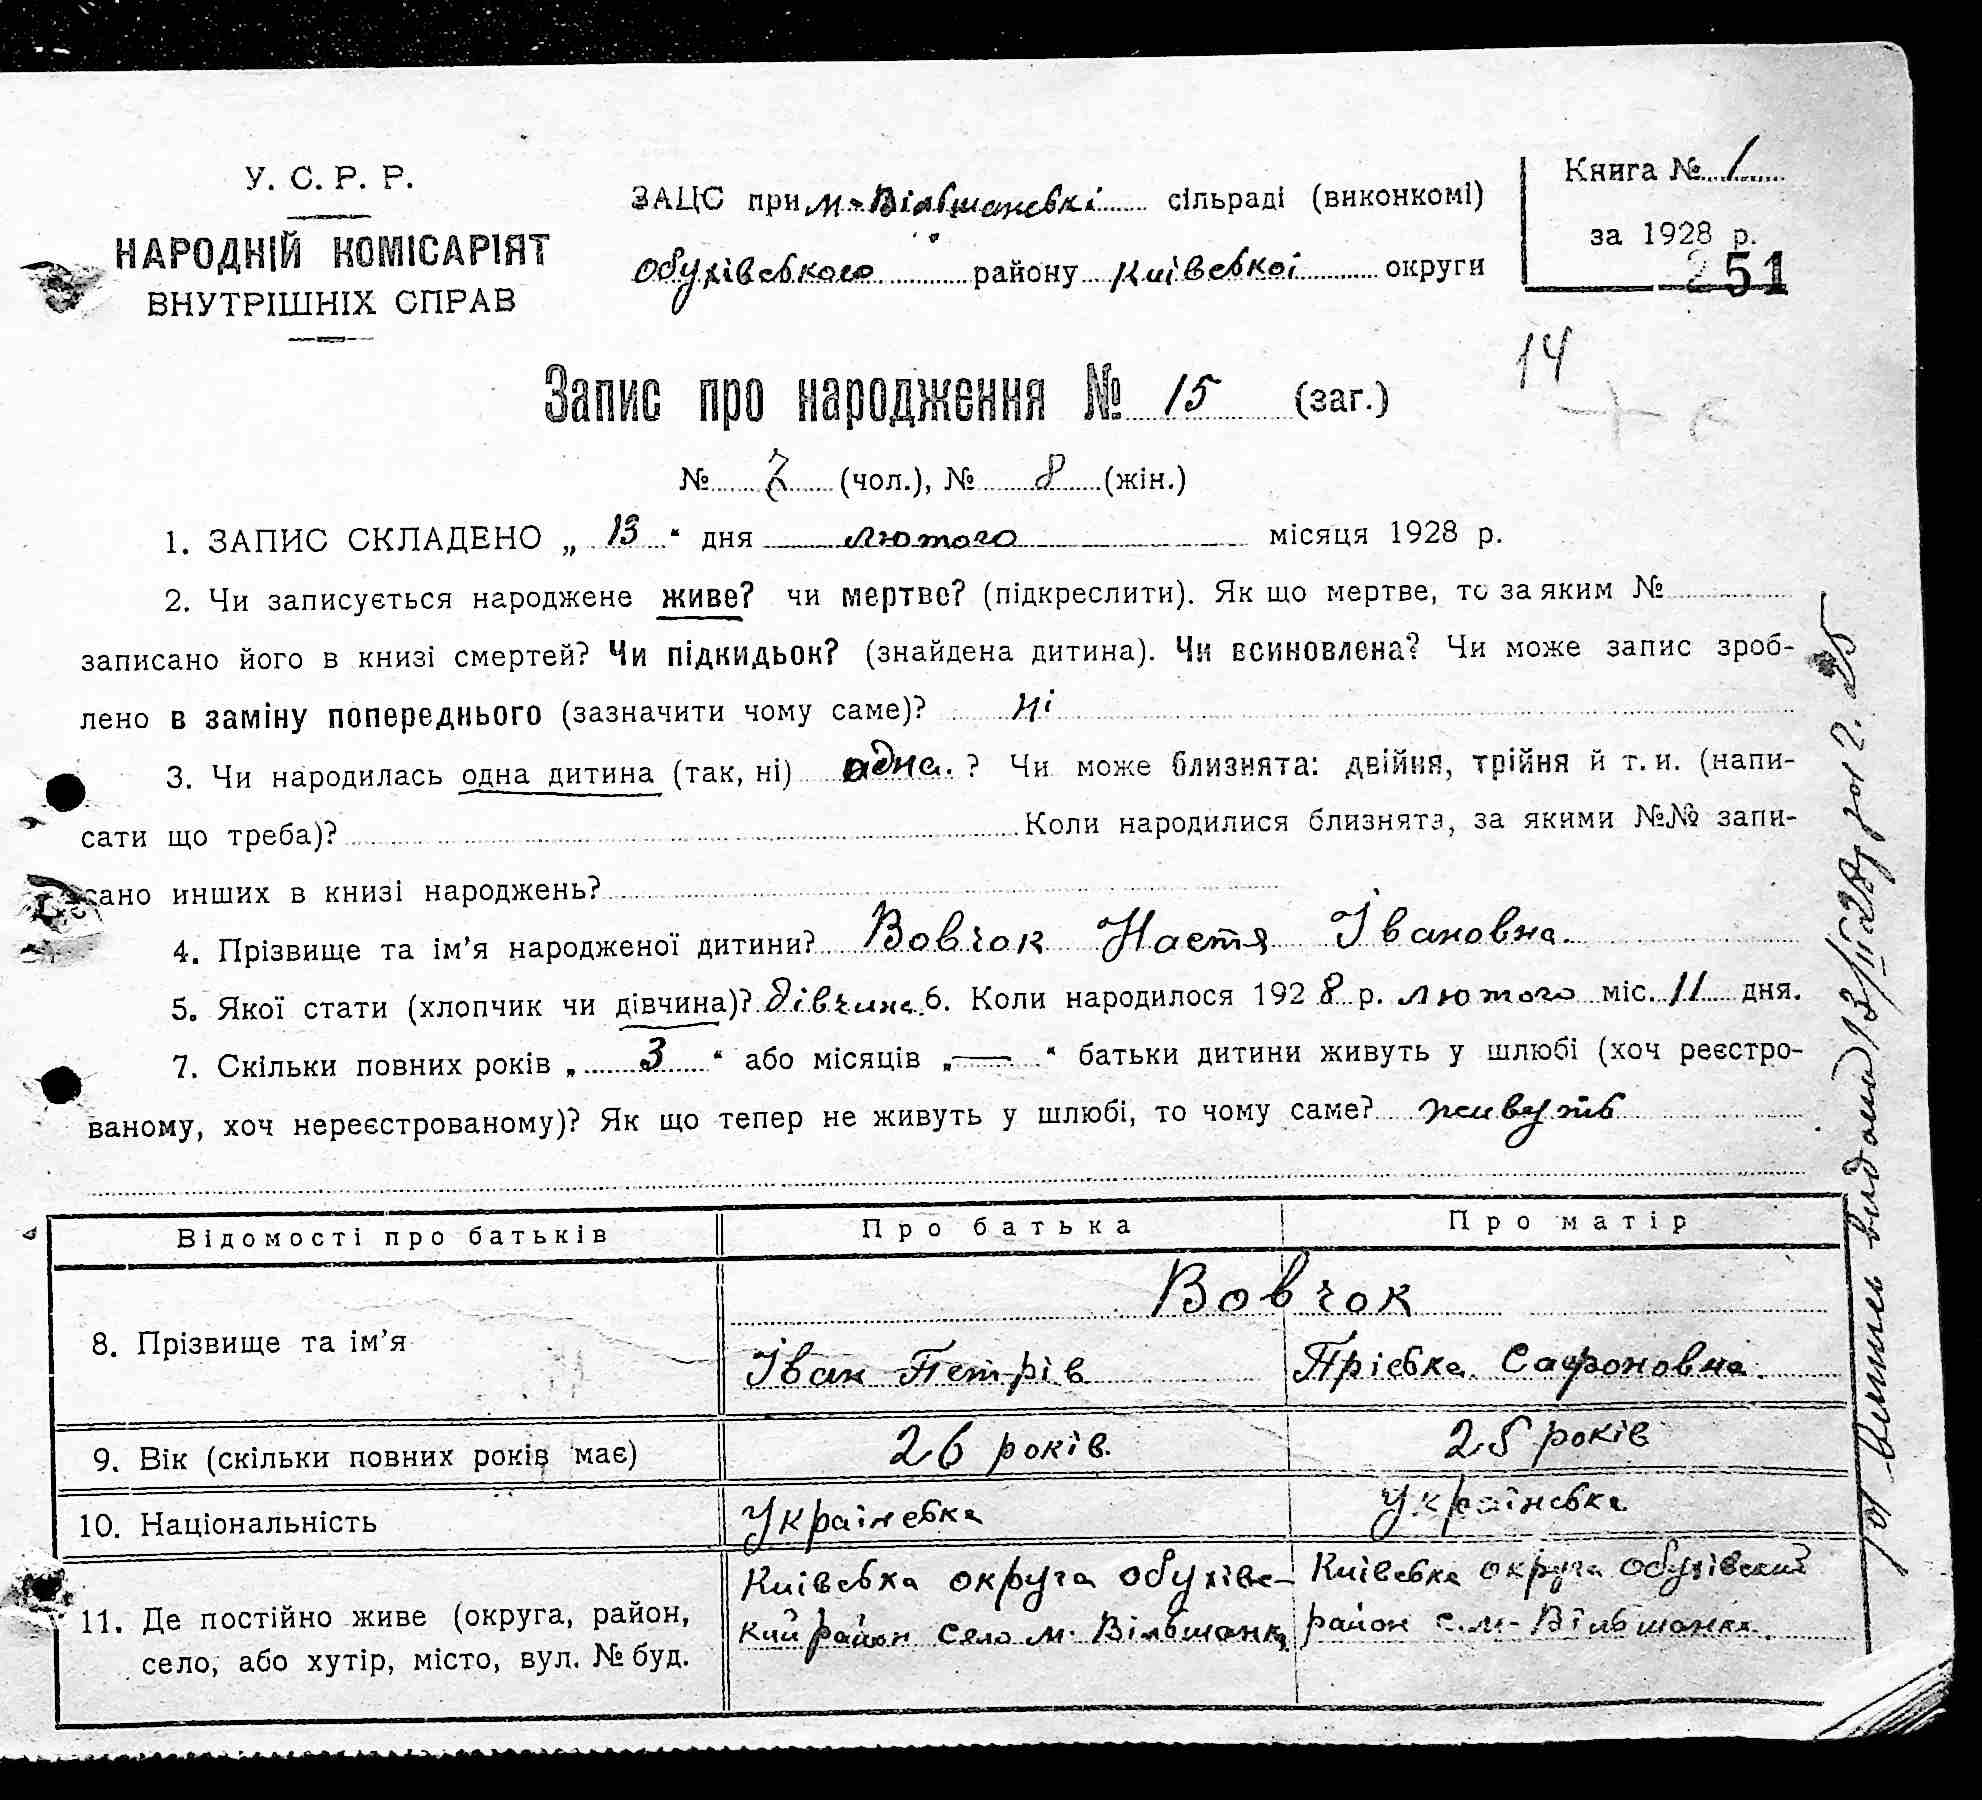 У. С. Р. Р.
НАРОДНІЙ КОМІСАРІЯТ
ВНУТРІШНІХ СПРАВ
ЗАЦС при м-Вільшанській сільраді (виконкомі)
Обухівського району Київської округи
Книга № 1
за 1928 р.
251
14
Запис про народження № 15 (заг.)
№ 7 (чол.), № 8 (жін.)
1. ЗАПИС СКЛАДЕНО „ 13 “ дня лютого місяця 1928 р.
2. Чи записується народжене живе? чи мертве? (підкреслити). Як що мертве, то за яким №
записано його в книзі смертей? Чи підкидьок? (знайдена дитина). Чи всиновлена? Чи може запис зроб-
лено в заміну попереднього (зазначити чому саме)? ні
3. Чи народилась одна дитина (так, ні) одна. ? Чи може близнята: двійня, трійня й т. и. (напи-
сати що треба)? Коли народилися близнята, за якими №№ запи-
сано инших в книзі народжень?
4. Прізвище та ім’я народженої дитини? Вовчок Настя Івановна.
5. Якої стати (хлопчик чи дівчина)? дівчина. 6. Коли народилося 1928 р. лютого міс. 11 дня.
7. Скільки повних років „ 3 “ або місяців „ — “ батьки дитини живуть у шлюбі (хоч реєстро-
ваному, хоч нереєстрованому)? Як що тепер не живуть у шлюбі, то чому саме? живуть
Відомості про батьків Про батька Про матір
Вовчок
8. Прізвище та ім’я Іван Петрів Пріська Сафоновна.
9. Вік (скільки повних років має) 26 років. 25 років
10. Національність Українська Українська
11. Де постійно живе (округа, район,
село, або хутір, місто, вул. № буд.
Київська округа обухівс-
кий район село м. Вільшанка
Київська округа обухівский
район с. м-Вільшанка.